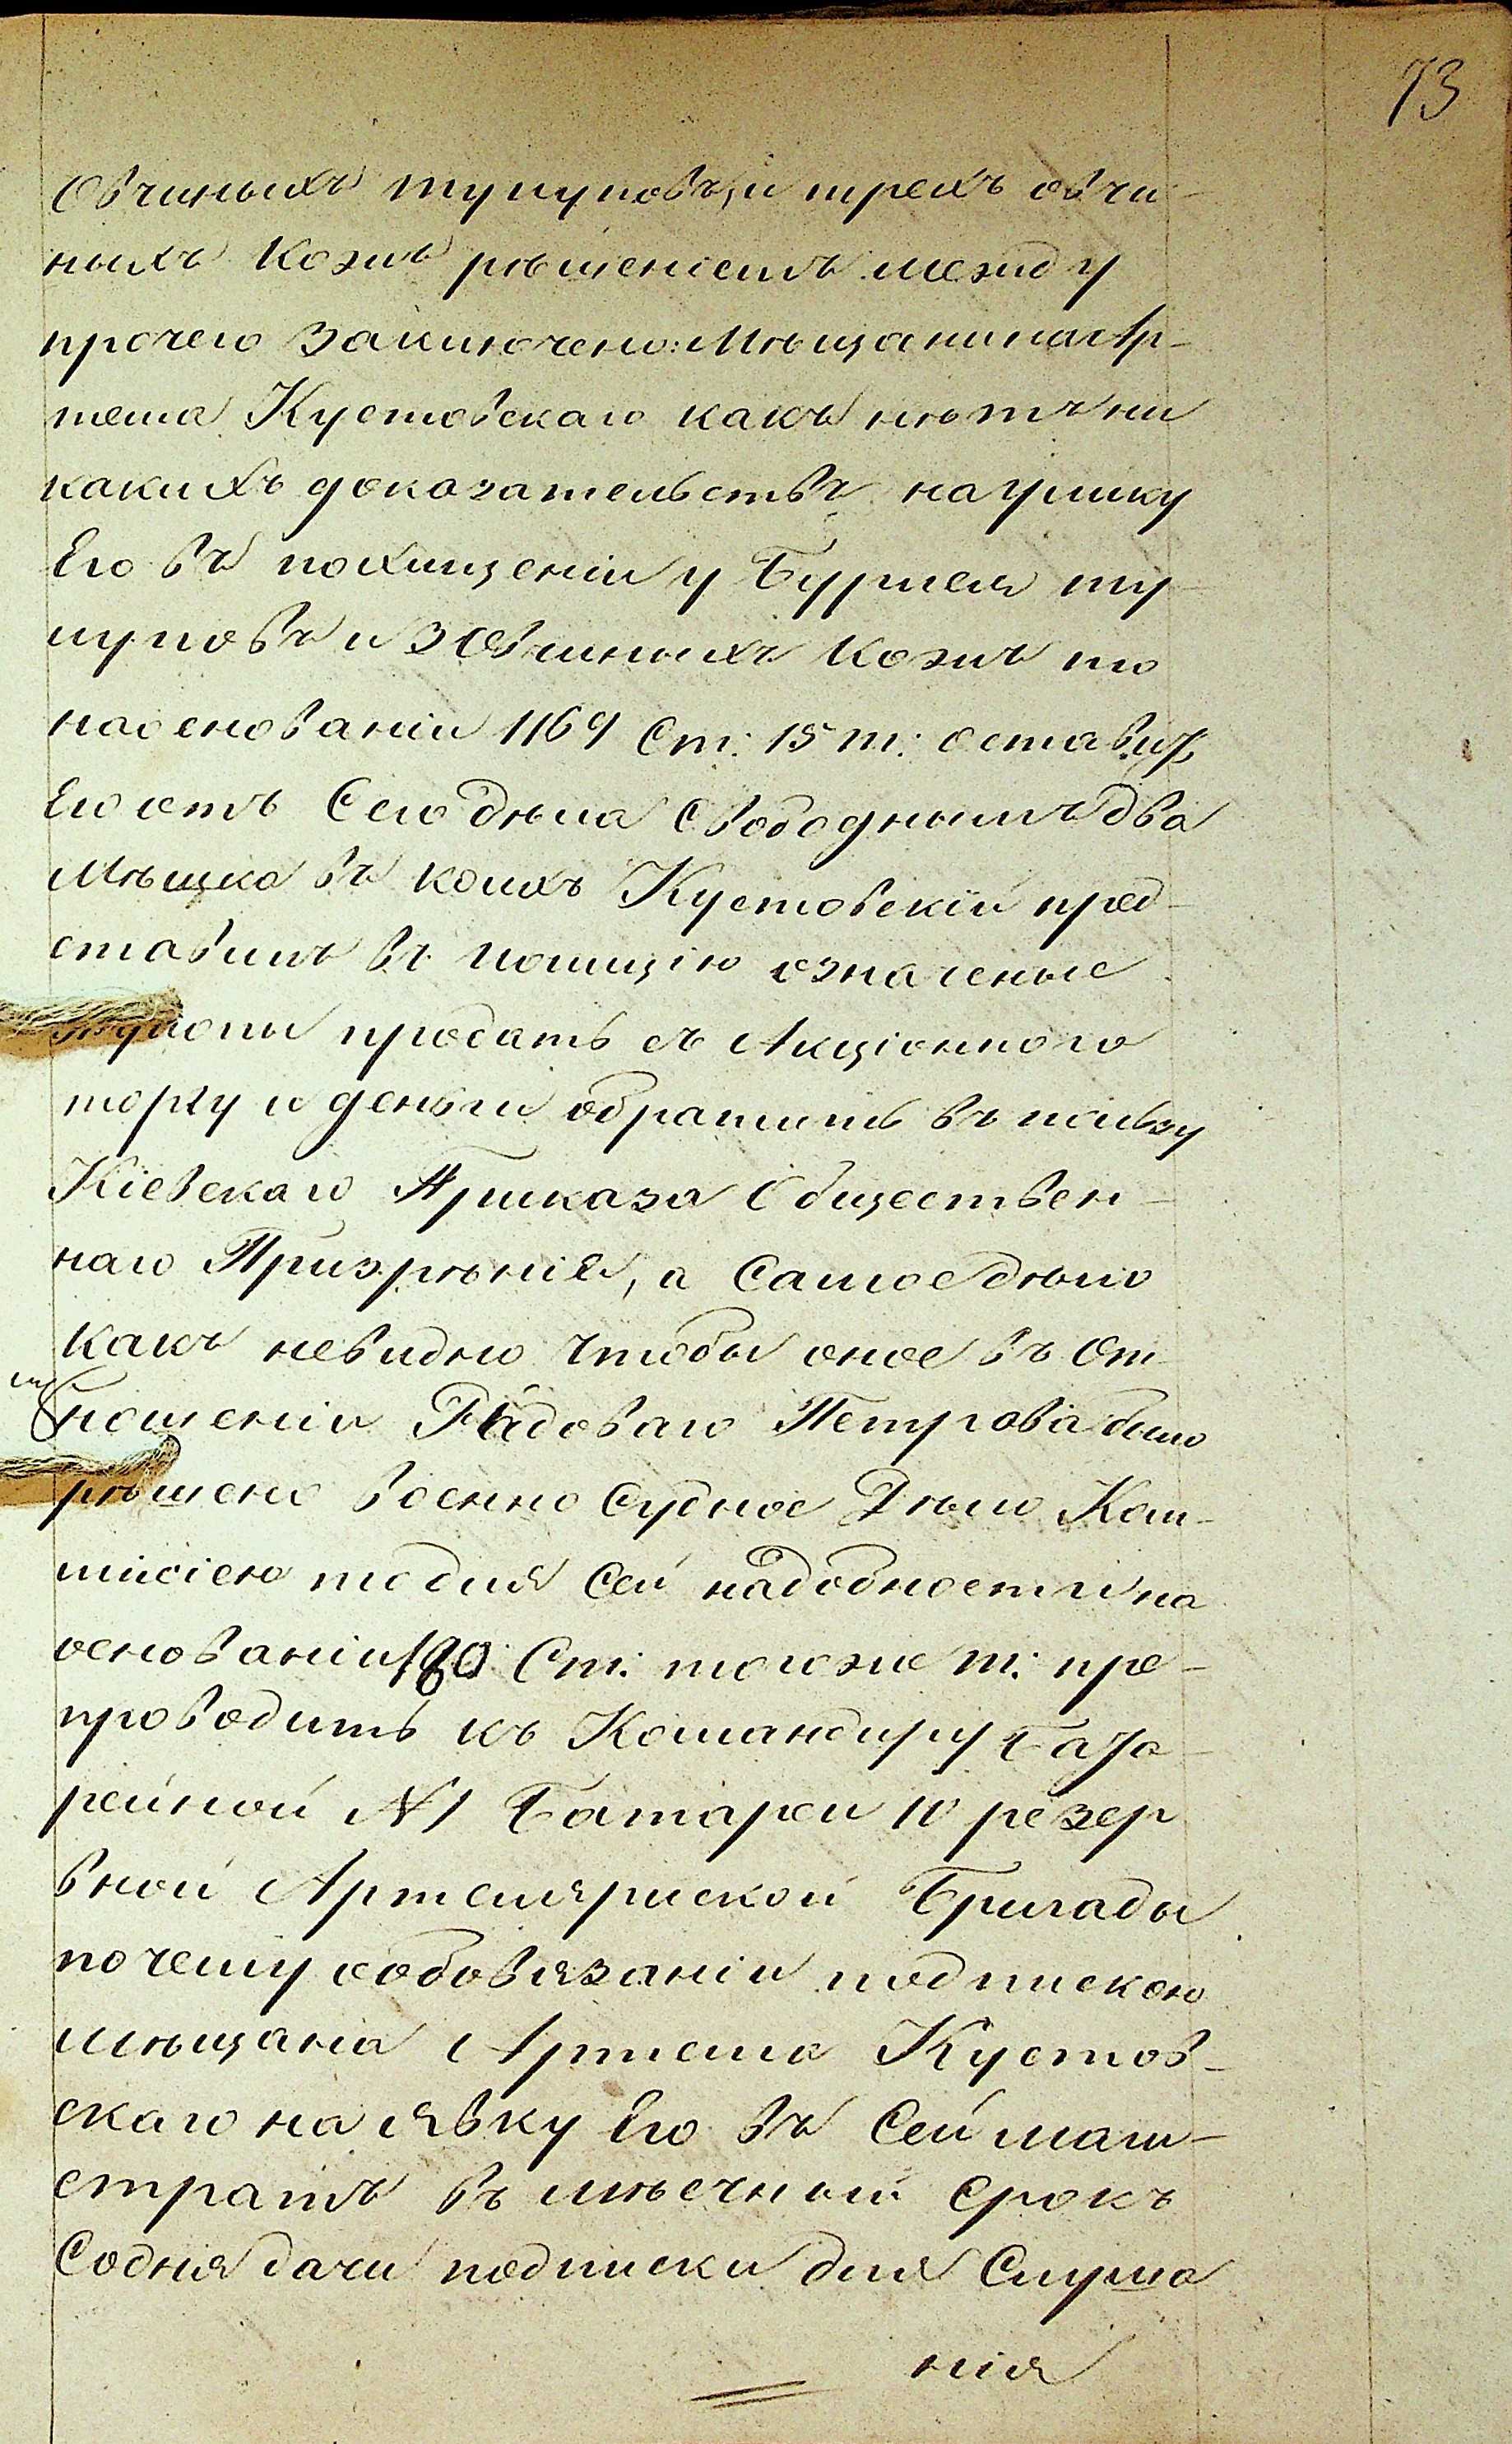 73
Овчиныхъ тулуповъ, и трехъ овчи-
ныхъ кожъ рѣшеніемъ между
прочего заключено: Мѣщанина Ар-
тема Кустовскаго какъ нѣтъ ни
какихъ доказательствъ на улику
Его въ похищеніи у Бурмея ту-
луповъ и 3 Овчиныхъ кожъ то
на основаніи 1169 Ст: 15 т: оставить
Его отъ Сего дѣла Свободнымъ два
Мѣшка въ коихъ Кустовскій пред-
ставилъ въ полицію означеные
тулопы продать съ Акціонного
торгу и деньги обратить въ пользу
Кіевскаго Приказа Обществен-
наго Призрѣнія, а Самое дѣло
какъ невидно чтобы оное въ От-
ношеніи Рядоваго Петрова было
рѣшено военно Судное Дѣло Ком-
мисіею то для Сей надобности на
основаніи 180 Ст: тогоже т: пре-
проводить къ Командиру Бата-
рейной № 1 Батареи 10 резер
вной Артелярийской Бригады
почему собовязаніи подпискою
мѣщана Артема Кустов-
скаго на явку Его въ Сей маги-
стратъ въ мѣсчный срокъ
Содня дачи подписки для Слуша
нія